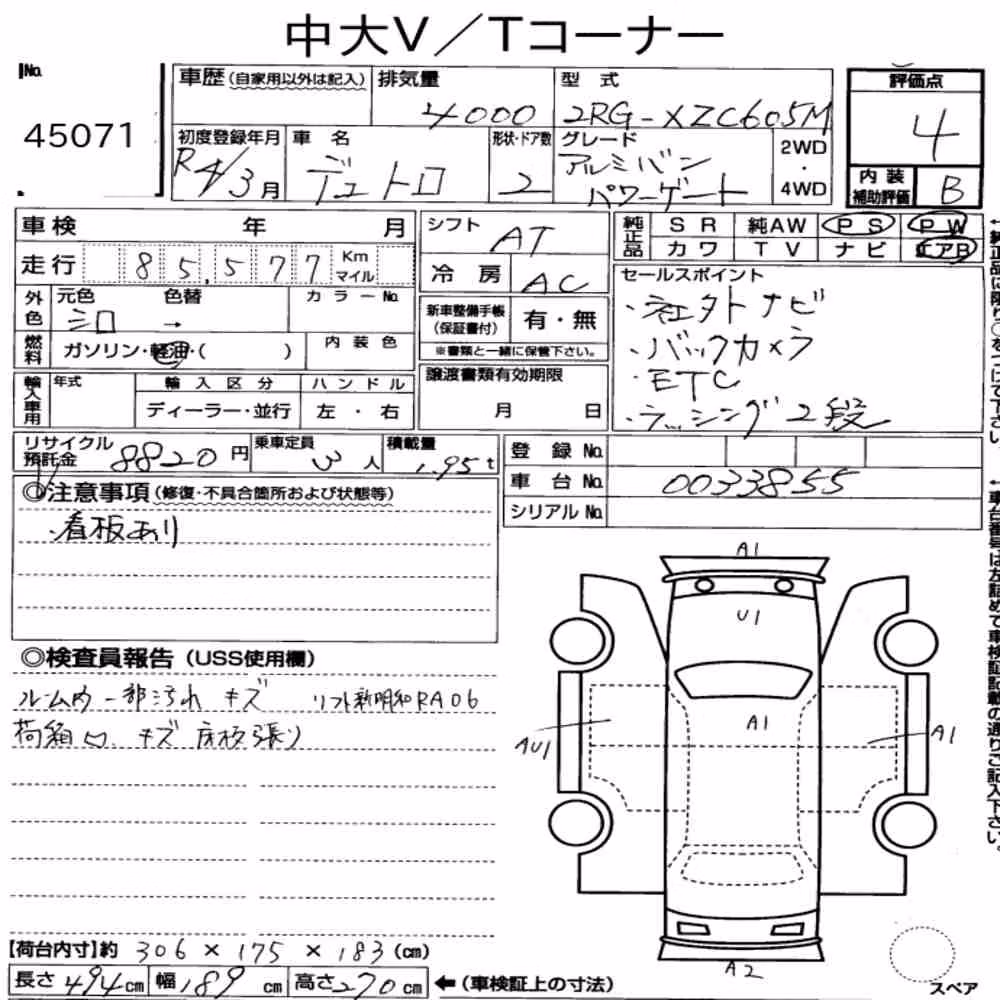 中大V／Tコーナー
No.
45071
車歴（自家用以外は記入）
排気量
4000
型式
2RG-XZC605M
評価点
4
初度登録年月
R4/3月
車名
デュトロ
形状・ドア数
2
グレード
アルミバン
パワーゲート
2WD
・
4WD
内装
補助評価
B
車検 年 月
走行 85,577 Km
マイル
シフト
AT
冷房
AC
純正品
SR 純AW PS PW
カワ TV ナビ エアB
外色
元色 色替
シロ →
カラーNo.
燃料
ガソリン・軽油・( )
内装色
新車整備手帳
（保証書付）
有・無
※書類と一緒に保管下さい。
セールスポイント
・社外ナビ
・バックカメラ
・ETC
・ラッシング2段
輸入車用
年式
輸入区分
ディーラー・並行
ハンドル
左・右
譲渡書類有効期限
月 日
リサイクル
預託金
8820円
乗車定員
3人
積載量
1.95t
登録No.
車台No.
0033855
シリアルNo.
◎注意事項（修復・不具合箇所および状態等）
・看板あり
◎検査員報告（USS使用欄）
ルーム内一部汚れ キズ リフト新明和RA06
荷箱凹、キズ 床板張り
A1
U1
A1
AU1
A1
A2
スペア
【荷台内寸】約 306×175×183(cm)
長さ494cm 幅189cm 高さ270cm ←（車検証上の寸法）
←純正品に限り○をつけて下さい。
←車台番号は左詰めで車検証記載の通りご記入下さい。